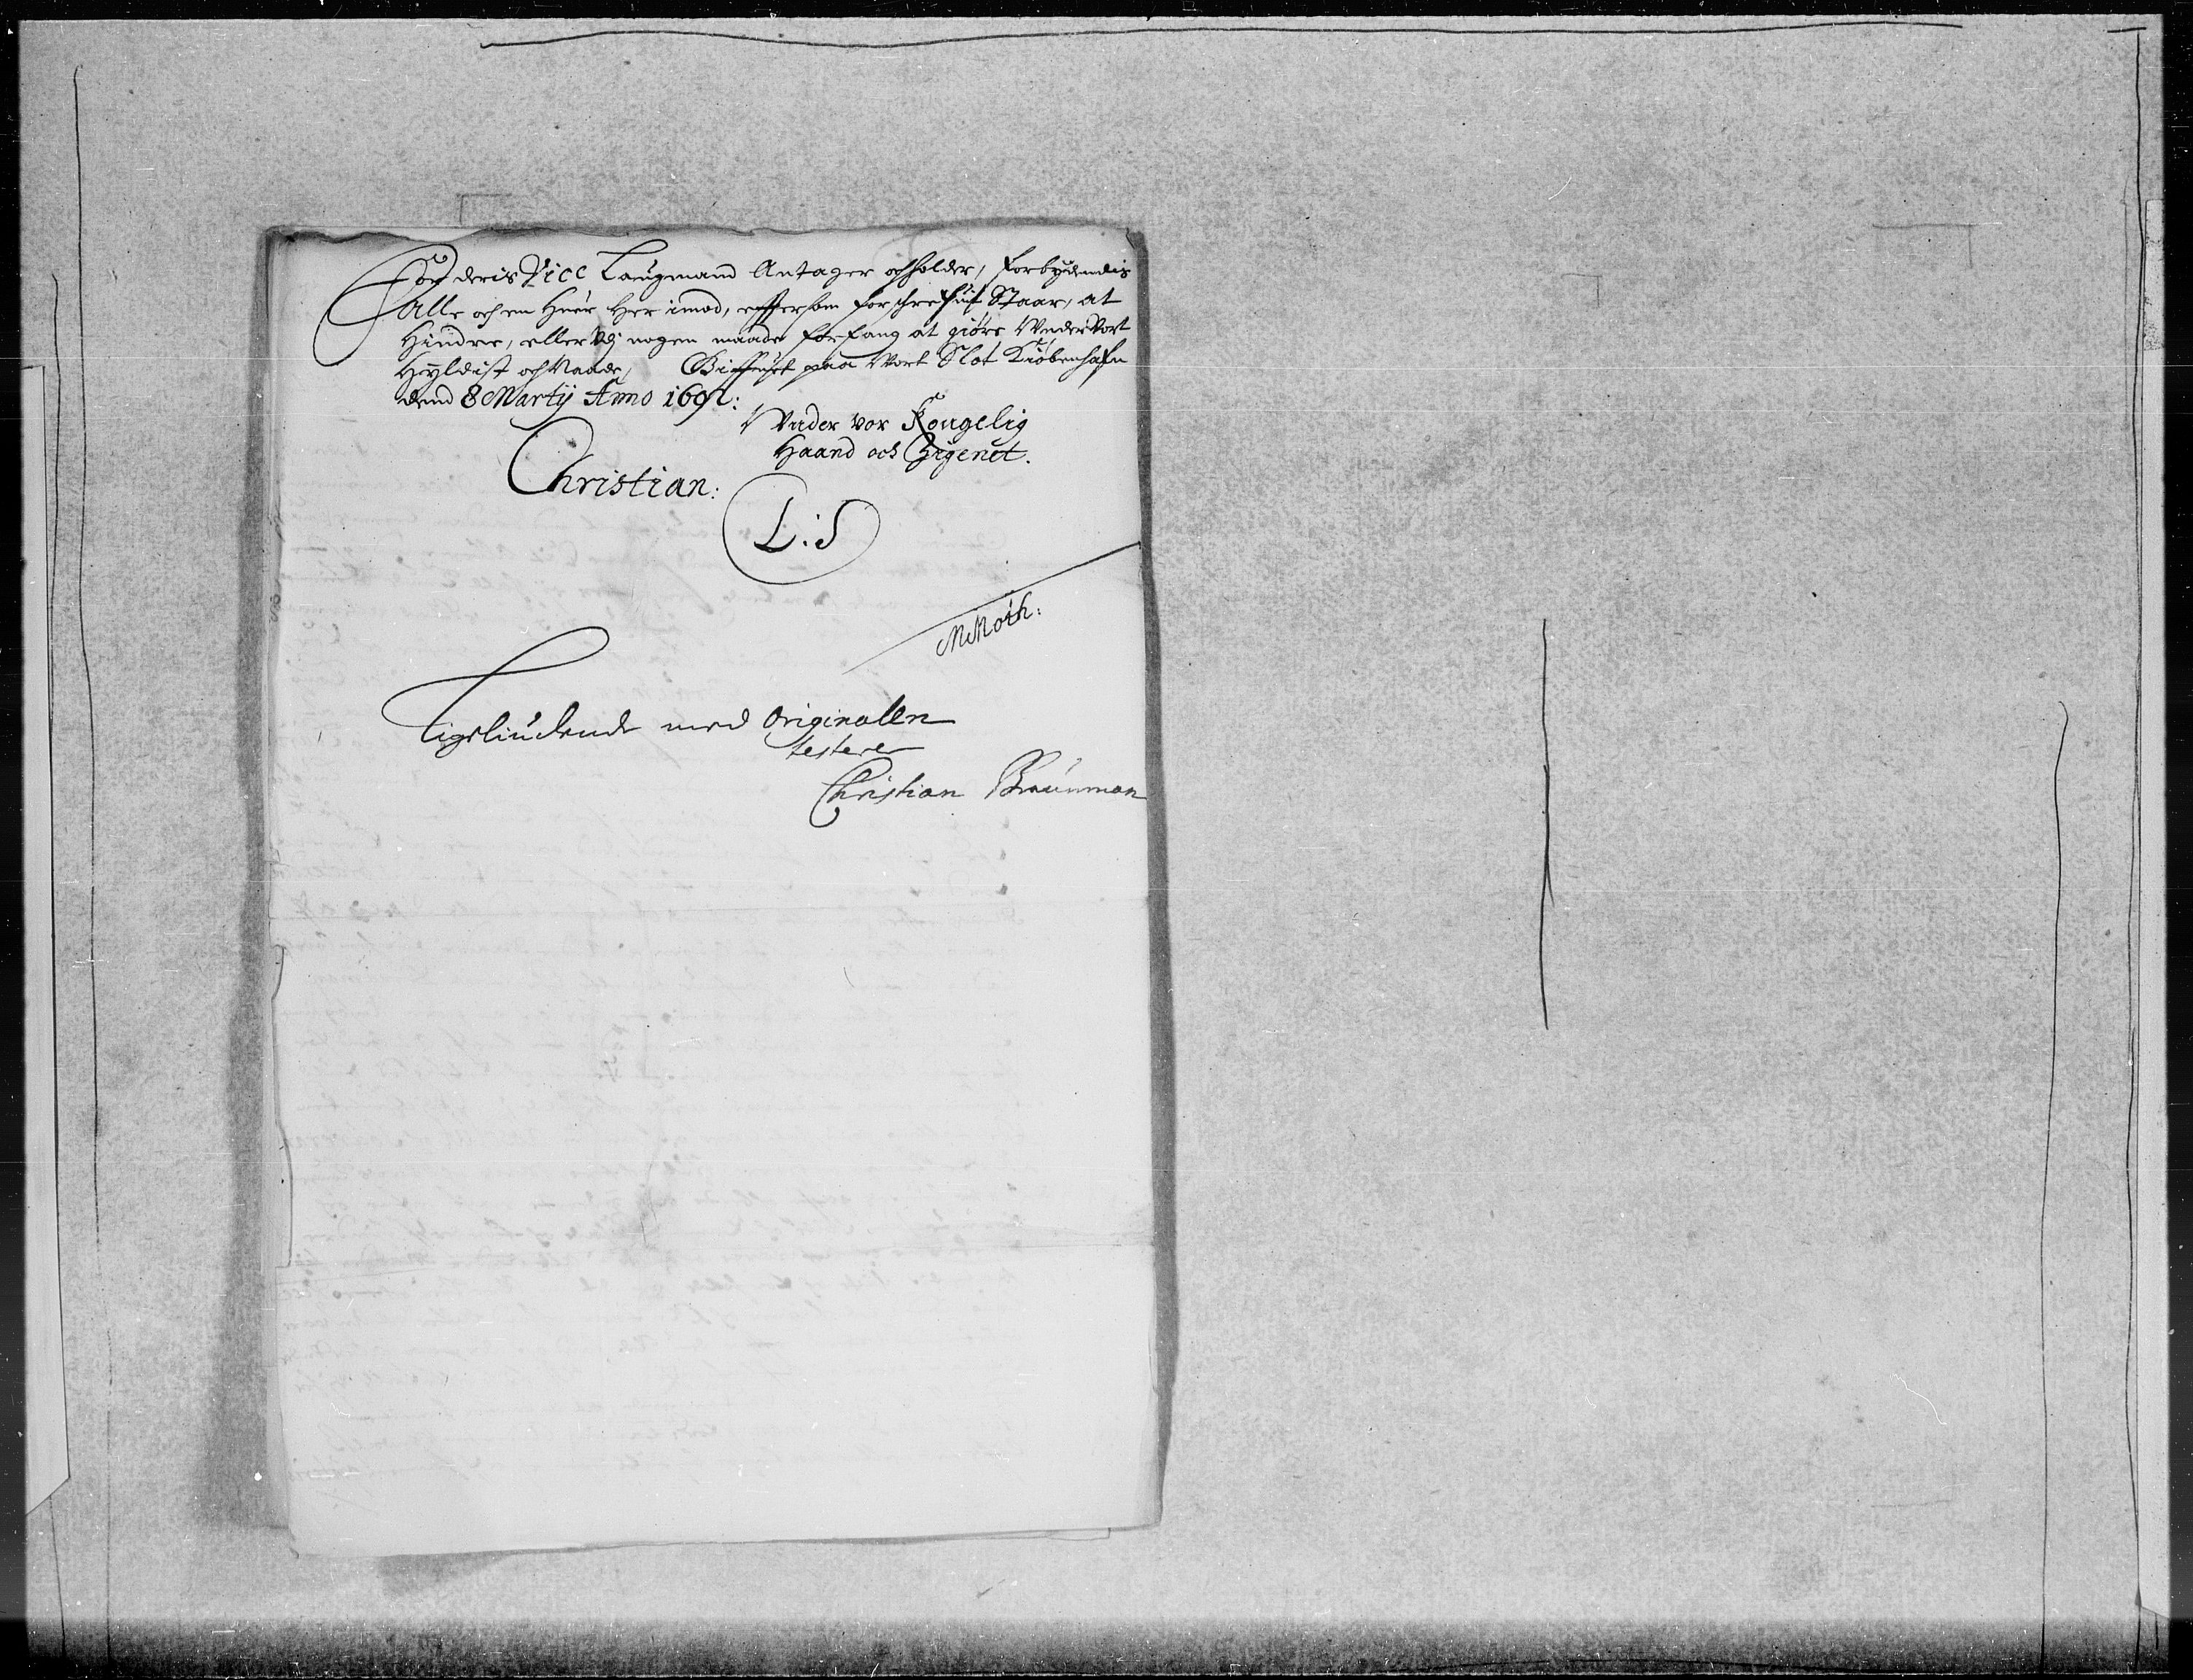 For deris Vice Laugmand Antager och holder, forbydendis
Alle och en Huer her imod, eftersom forschrefuit Staar, at
Hindre, eller udj nogen maade forfang at giøre Under Vort
Hyldist och Naade, Gifuet paa Vort Slot Kiøbenhafn
dend 8 Martij Anno 1692:
Under vor Kongelig
Haand och Zigenet.
Christian:
L:S
M Moth:
Ligeliudende med Originalen
testerer
Christian Braunman